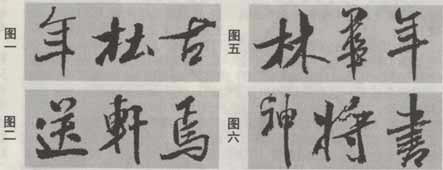 图一
年杜古
图五
林華年
图二
送軒焉
图六
神将書